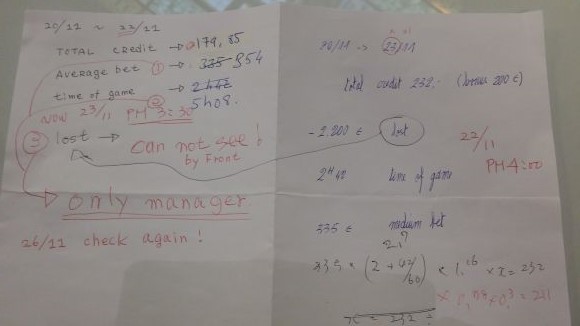 20/11 ~ 22/11
TOTAL credit → 179,85
AVERAGE bet ① → 335 854
time of game → 2h42
② 5h08.
NOW 23/11 PM 3:30
③ lost → can not see !
by Front
→ only manager
26/11 check again !
20/11 → 23/11
total credit 232.- (bonus 200 €)
- 2.200 € lost
22/11
PM 4:00
2H40 time of game
335 € medium bet
335 × (2 + 42/60) × 1,16 × x = 232